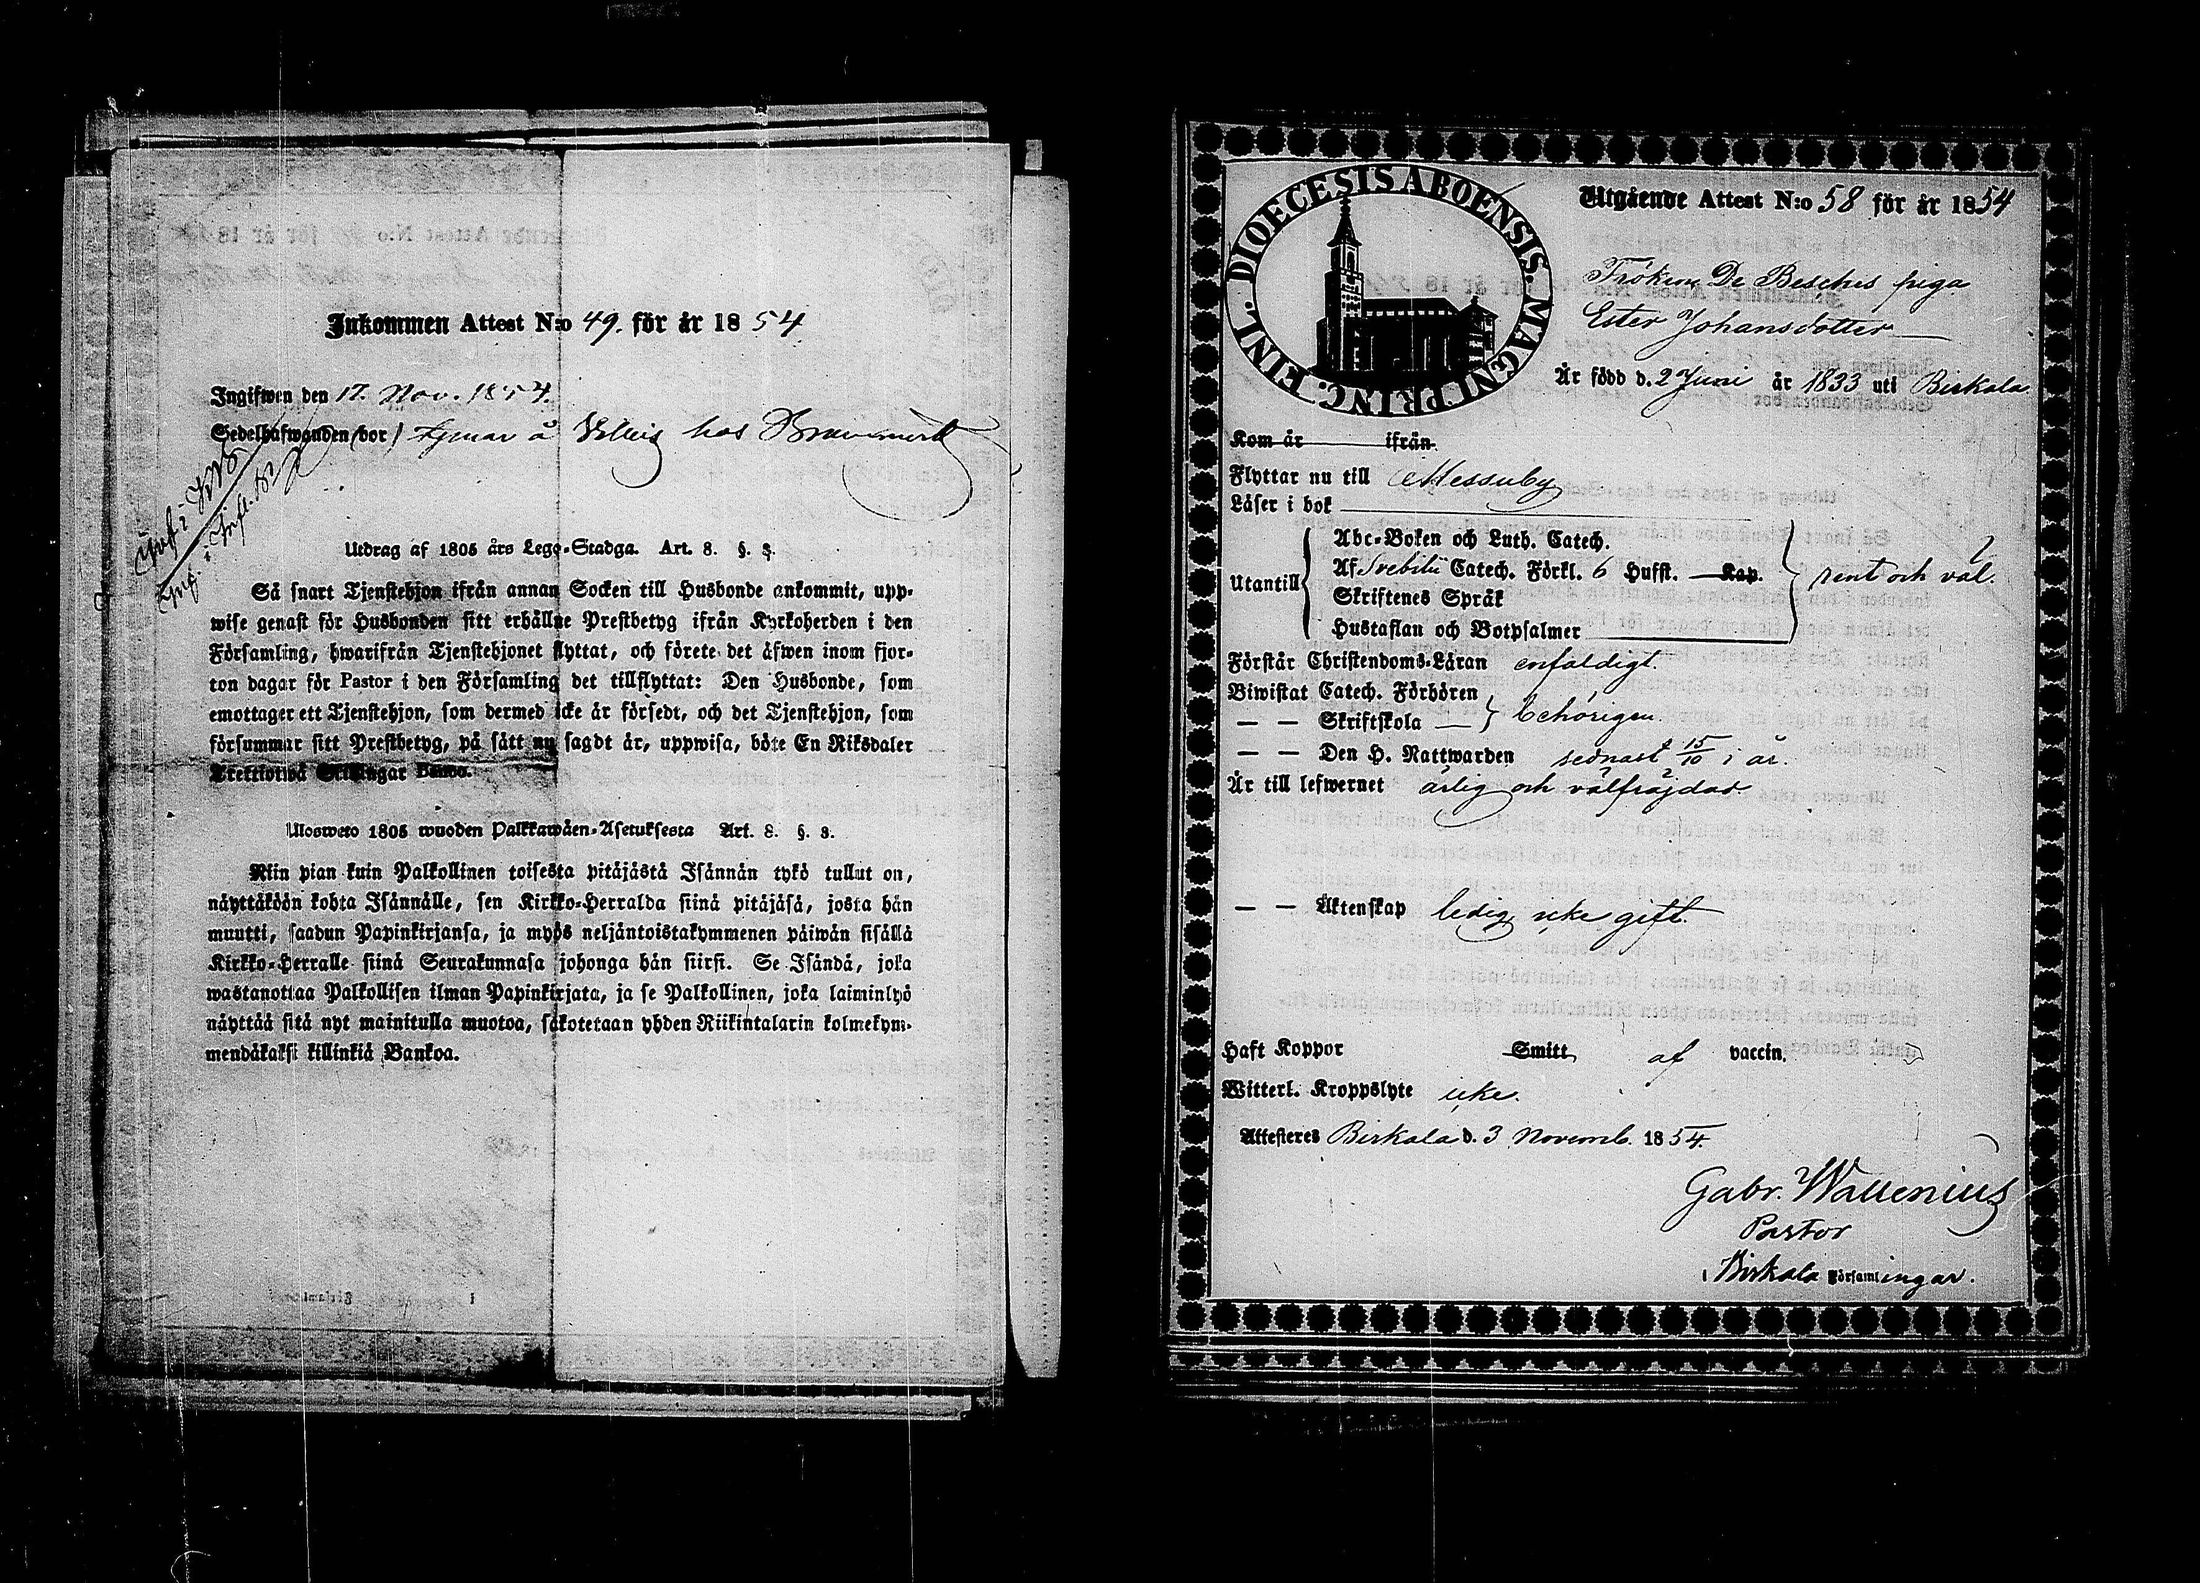 Inkommen Attest N:o 49. för år 1854
Ingifwen den 17. Nov. 1854.
Sedelhafwanden (bor) tjenar å hos
Utdrag af 1805 års Lego-Stadga. Art. 8. §. 3.
Så snart Tjenstehjon ifrån annan Socken till Husbonde ankommit, upp-
wise genast för Husbonden sitt erhållne Prestbetyg ifrån Kyrkoherden i den
Församling, hwarifrån Tjenstehjonet flyttat, och förete det äfwen inom fjor-
ton dagar för Pastor i den Församling det tillflyttat: Den Husbonde, som
emottager ett Tjenstehjon, som dermed icke är försedt, och det Tjenstehjon, som
försummar sitt Prestbetyg, på sätt nu sagdt är, uppwisa, böte En Riksdaler
Trettiotwå Skillingar Banco.
Ulosweto 1805 wuoden Palkkawäen-Asetuksesta Art. 8. §. 3.
Niin pian kuin Palkollinen toisesta pitäjästä Isännän tykö tullut on,
näyttäköön kohta Isännälle, sen Kirkko-Herralda siinä pitäjäsä, josta hän
muutti, saadun Papinkirjansa, ja myös neljäntoistakymmenen päiwän sisällä
Kirkko-Herralle siinä Seurakunnasa johonga hän siirsi. Se Isändä, joka
wastanottaa Palkollisen ilman Papinkirjata, ja se Palkollinen, joka laiminlyö
näyttää sitä nyt mainitulla muotoa, sakotetaan yhden Riikintalarin kolmekym-
mendäkaksi killinkiä Bankoa.
DIOECESIS ABOENSIS. MAGNI PRINC. FINL.
Utgående Attest N:o 58 för år 1854
Fröken De Besches piga
Ester Johansdotter
Är född d. 2 Juni år 1833 uti Birkala
Kom år ifrån
Flyttar nu till Messuby
Läser i bok
Utantill
Abc-Boken och Luth. Catech.
Af Svebilii Catech. Förkl. 6 Hufst. Kap.
Skriftenes Språk
Hustaflan och Botpsalmer
rent och väl.
Förstår Christendoms-Läran enfaldigt.
Biwistat Catech. Förhören
— — Skriftskola — behörigen.
— — Den H. Nattwarden sednast 15/10 i år.
Är till lefwernet ärlig och välfräjdad.
— — Äktenskap ledig icke gift.
Haft Koppor Smitt af vaccin.
Witterl. Kroppslyte icke.
Attesteres Birkala d. 3 Novemb. 1854.
Gabr. Wallenius
Pastor
i Birkala Församlingar.